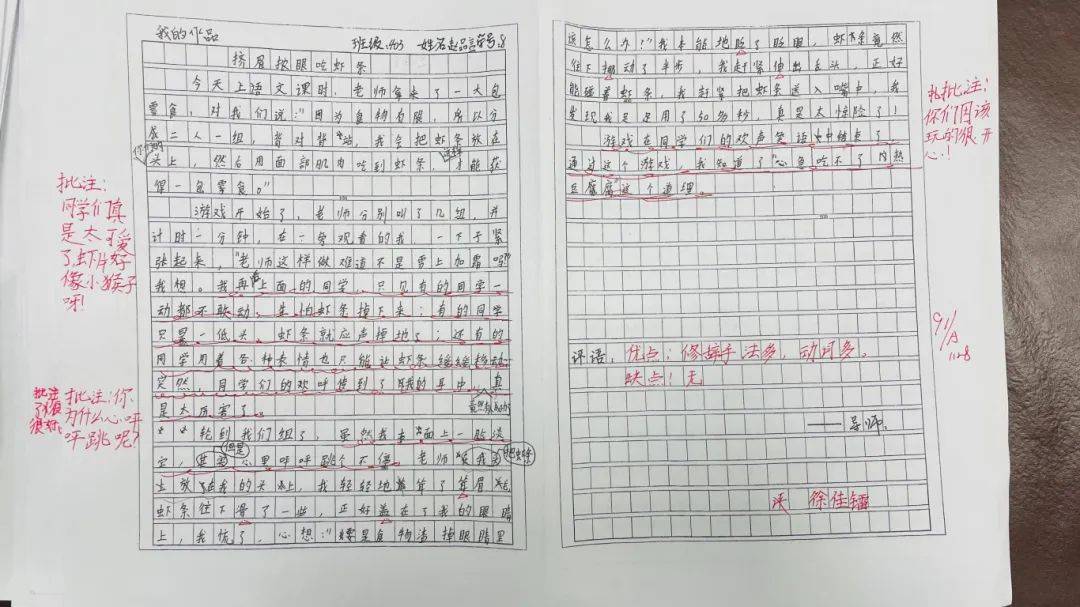 我的作品
班级:403 姓名 赵品言 学号:8
挤眉按眼吃虾条
今天上语文课时,老师拿来了一大包
零食,对我们说:“因为食物有限,所以分
成二人一组,背对背站,我会把虾条放在
你们的
头上,然后用面部肌肉吃到虾条,才能获
这样
得一包零食。”
游戏开始了,老师分别叫了几组,并
计时一分钟,在一旁观看的我,一下子紧
张起来,“老师这样做难道不是雪上加霜吗?”
我想。我再看上面的同学,只见有的同学一
动都不敢动,生怕虾条掉下来;有的同学
只是一低头,虾条就应声掉地了;还有的
同学用着各种表情也只能让虾条缓缓移动。
突然,同学们的欢呼传到了我的耳中,真
是太厉害了。
竟然
轮到我们组了,虽然我表面上一脸淡
定,但是心里怦怦跳个不停。老师
把虾条
放在我的头上,我轻轻地耸了耸眉毛,
虾条往下滑了一些,正好盖在了我的眼睛
上,我慌了,心想:“要是食物渣掉眼睛里
该怎么办?”我本能地眨了眨眼,虾条竟然
往下挪动了半步,我赶紧伸出舌头,正好
能碰着虾条,我赶紧把虾条送入嘴中,我
发现我足足用了50多秒,真是太惊险了!
游戏在同学们的欢声笑语中结束了,
通过这个游戏,我知道了“心急吃不了热
豆腐”这个道理。
批注:
同学们真
是太可爱
了虾片好
像小猴子
呀!
批注
了眉
很好。
批注:你
为什么心怦
怦跳呢?
批注:
你们因该
玩的很开
心!
91/A
11.28
评语:优点:修辞手法多,动词多。
缺点:无
——导师
评 徐佳镭